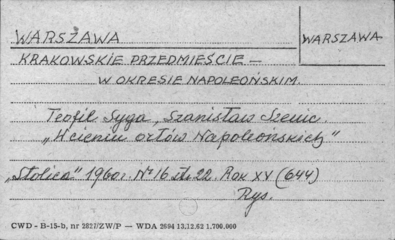 WARSZAWA
WARSZAWA
KRAKOWSKIE PRZEDMIEŚCIE —
W OKRESIE NAPOLEOŃSKIM.
Teofil Syga, Stanisław Szenic.
„W cieniu orłów Napoleońskich"
„Stolica" 1960 r. Nr 16 str. 22. Rok XV (644)
Rys.
CWD - B-15-b, nr 2827/ZW/P — WDA 2694 13.12.62 1.700.000